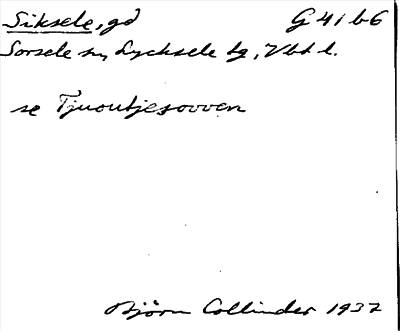 Siksele, gd G 41 b6
Sorsele sn, Lycksele tg, Vbtl.
se Tjuoutjesovven
Björn Collinder 1937